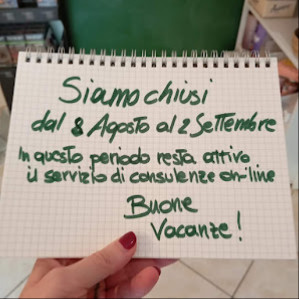 Siamo chiusi
dal 8 Agosto al 2 Settembre
In questo periodo resta attivo
il servizio di consulenze on-line
Buone
Vacanze!